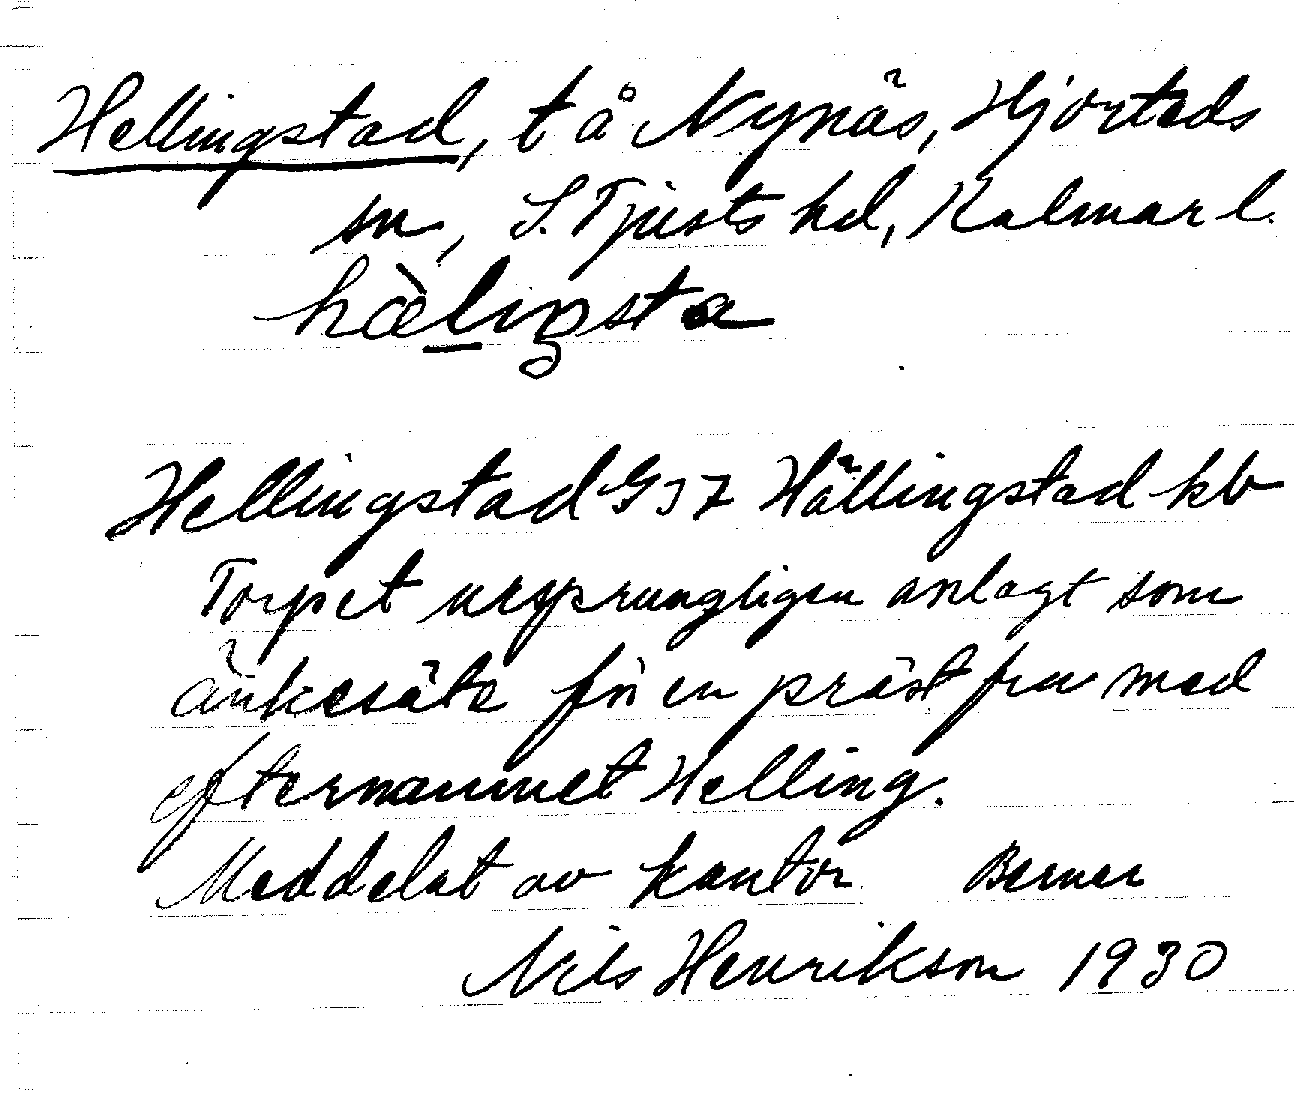 Hellingstad, t å Nynäs, Hjorteds
sn, S. Tjusts hd, Kalmar l.
hæ̀lıŋsta
Hellingstad GJZ Hällingstad kb
Torpet ursprungligen anlagt som
änkesäte för en prästfru med
efternamnet Helling.
Meddelat av kantor Berner
Nils Henrikson 1930